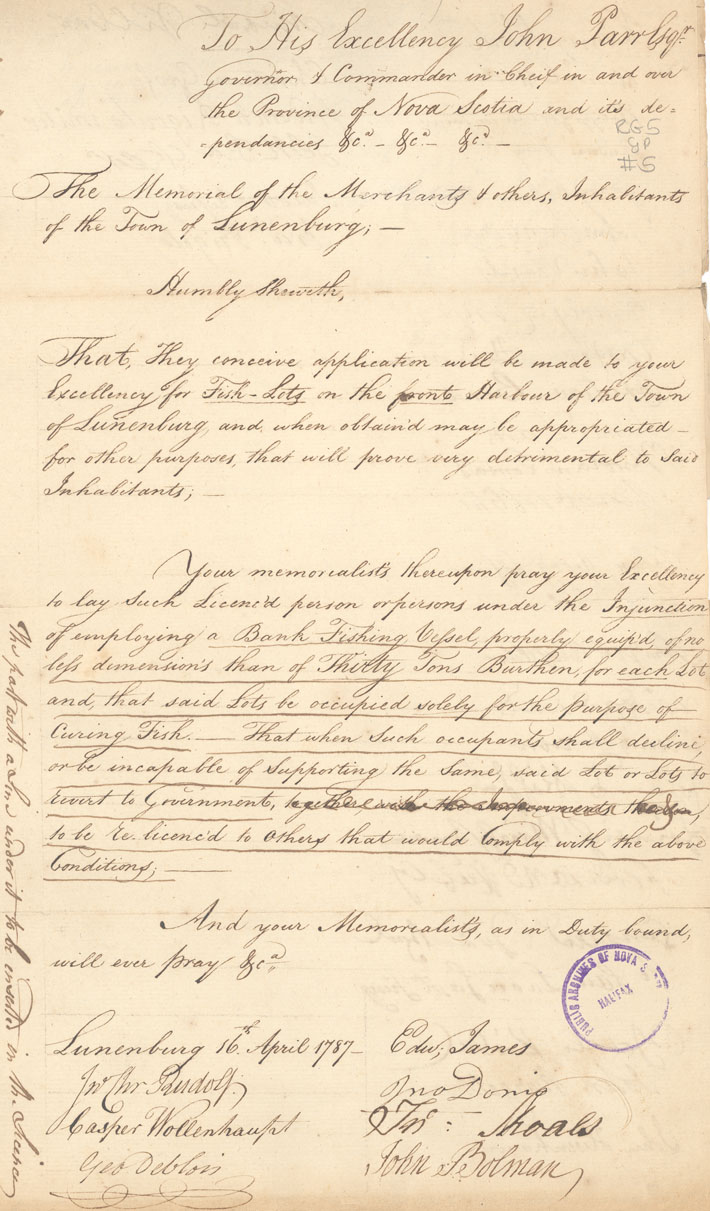 To His Excellency John Parr Esqr.
Governor & Commander in Cheif in and over
the Province of Nova Scotia and it's de=
-pendancies &ca. - &ca. - &ca. -
RG5
GP
#5
The Memorial of the Merchants & others, Inhabitants
of the Town of Lunenburg; —
Humbly Sheweth,
That, They conceive application will be made to your
Excellency for Fish-Lots on the front Harbour of the Town
of Lunenburg, and, when obtain'd may be appropriated —
for other purposes, that will prove very detrimental to said
Inhabitants; —
Your memorialist's thereupon pray your Excellency
to lay such Licenc'd person or persons under the Injunction
of employing a Bank Fishing Vessel, properly equip'd, of no
less dimension's than of Thirty Tons Burthen, for each Lot
and, that said Lots be occupied solely for the purpose of
Curing Fish. — That when such occupants shall decline,
or be incapable of supporting the same, said Lot or Lots to
revert to Government, together with the Improvements
to be re-licenc'd to others that would comply with the above
Conditions; —
And your Memorialist's, as in Duty bound,
will ever pray &ca.
PUBLIC ARCHIVES OF NOVA
HALIFAX
Lunenburg 16th April 1787 —
Edw; James
Jno Chr Rudolf
Casper Wollenhaupt
Jno
Geo Deblois
John Bolman
The part with a Line under it to be inserted in the Licence